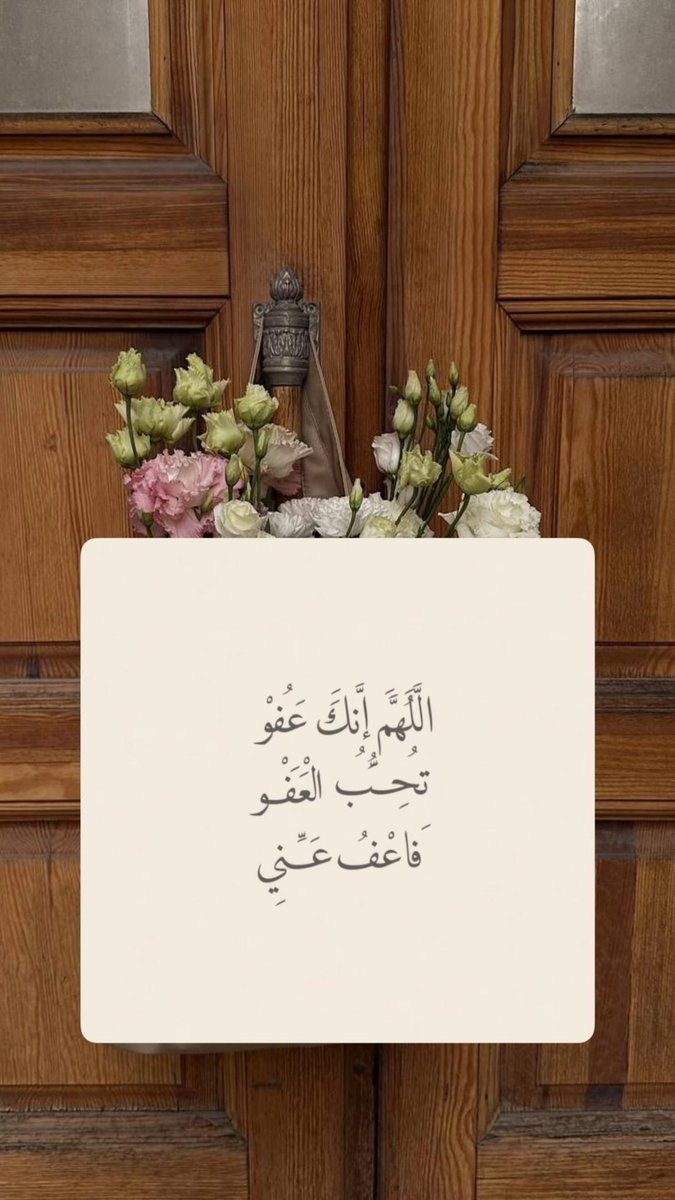 اللَّهُمَّ إنَّكَ عَفُوْ
تُحِبُّ الْعَفْو
فَاعْفُ عَنِّي